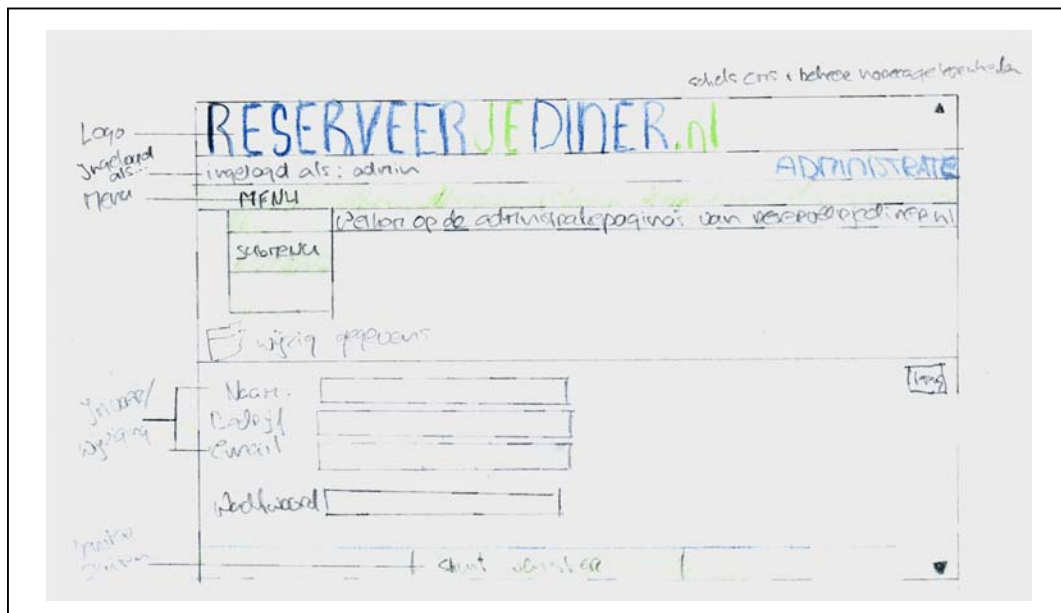 schets CMS + beheer
Logo
RESERVEERJEDINER.nl
Ingelogd
als...
ingelogd als : admin
ADMINISTRATIE
Menu
MENU
op de administratiepagina's van reserveerjediner.nl
SUBMENU
wijzig gegevens
terug
Invoer/
wijziging
Naam.
Bedrijf
email
Wachtwoord
sluit venster